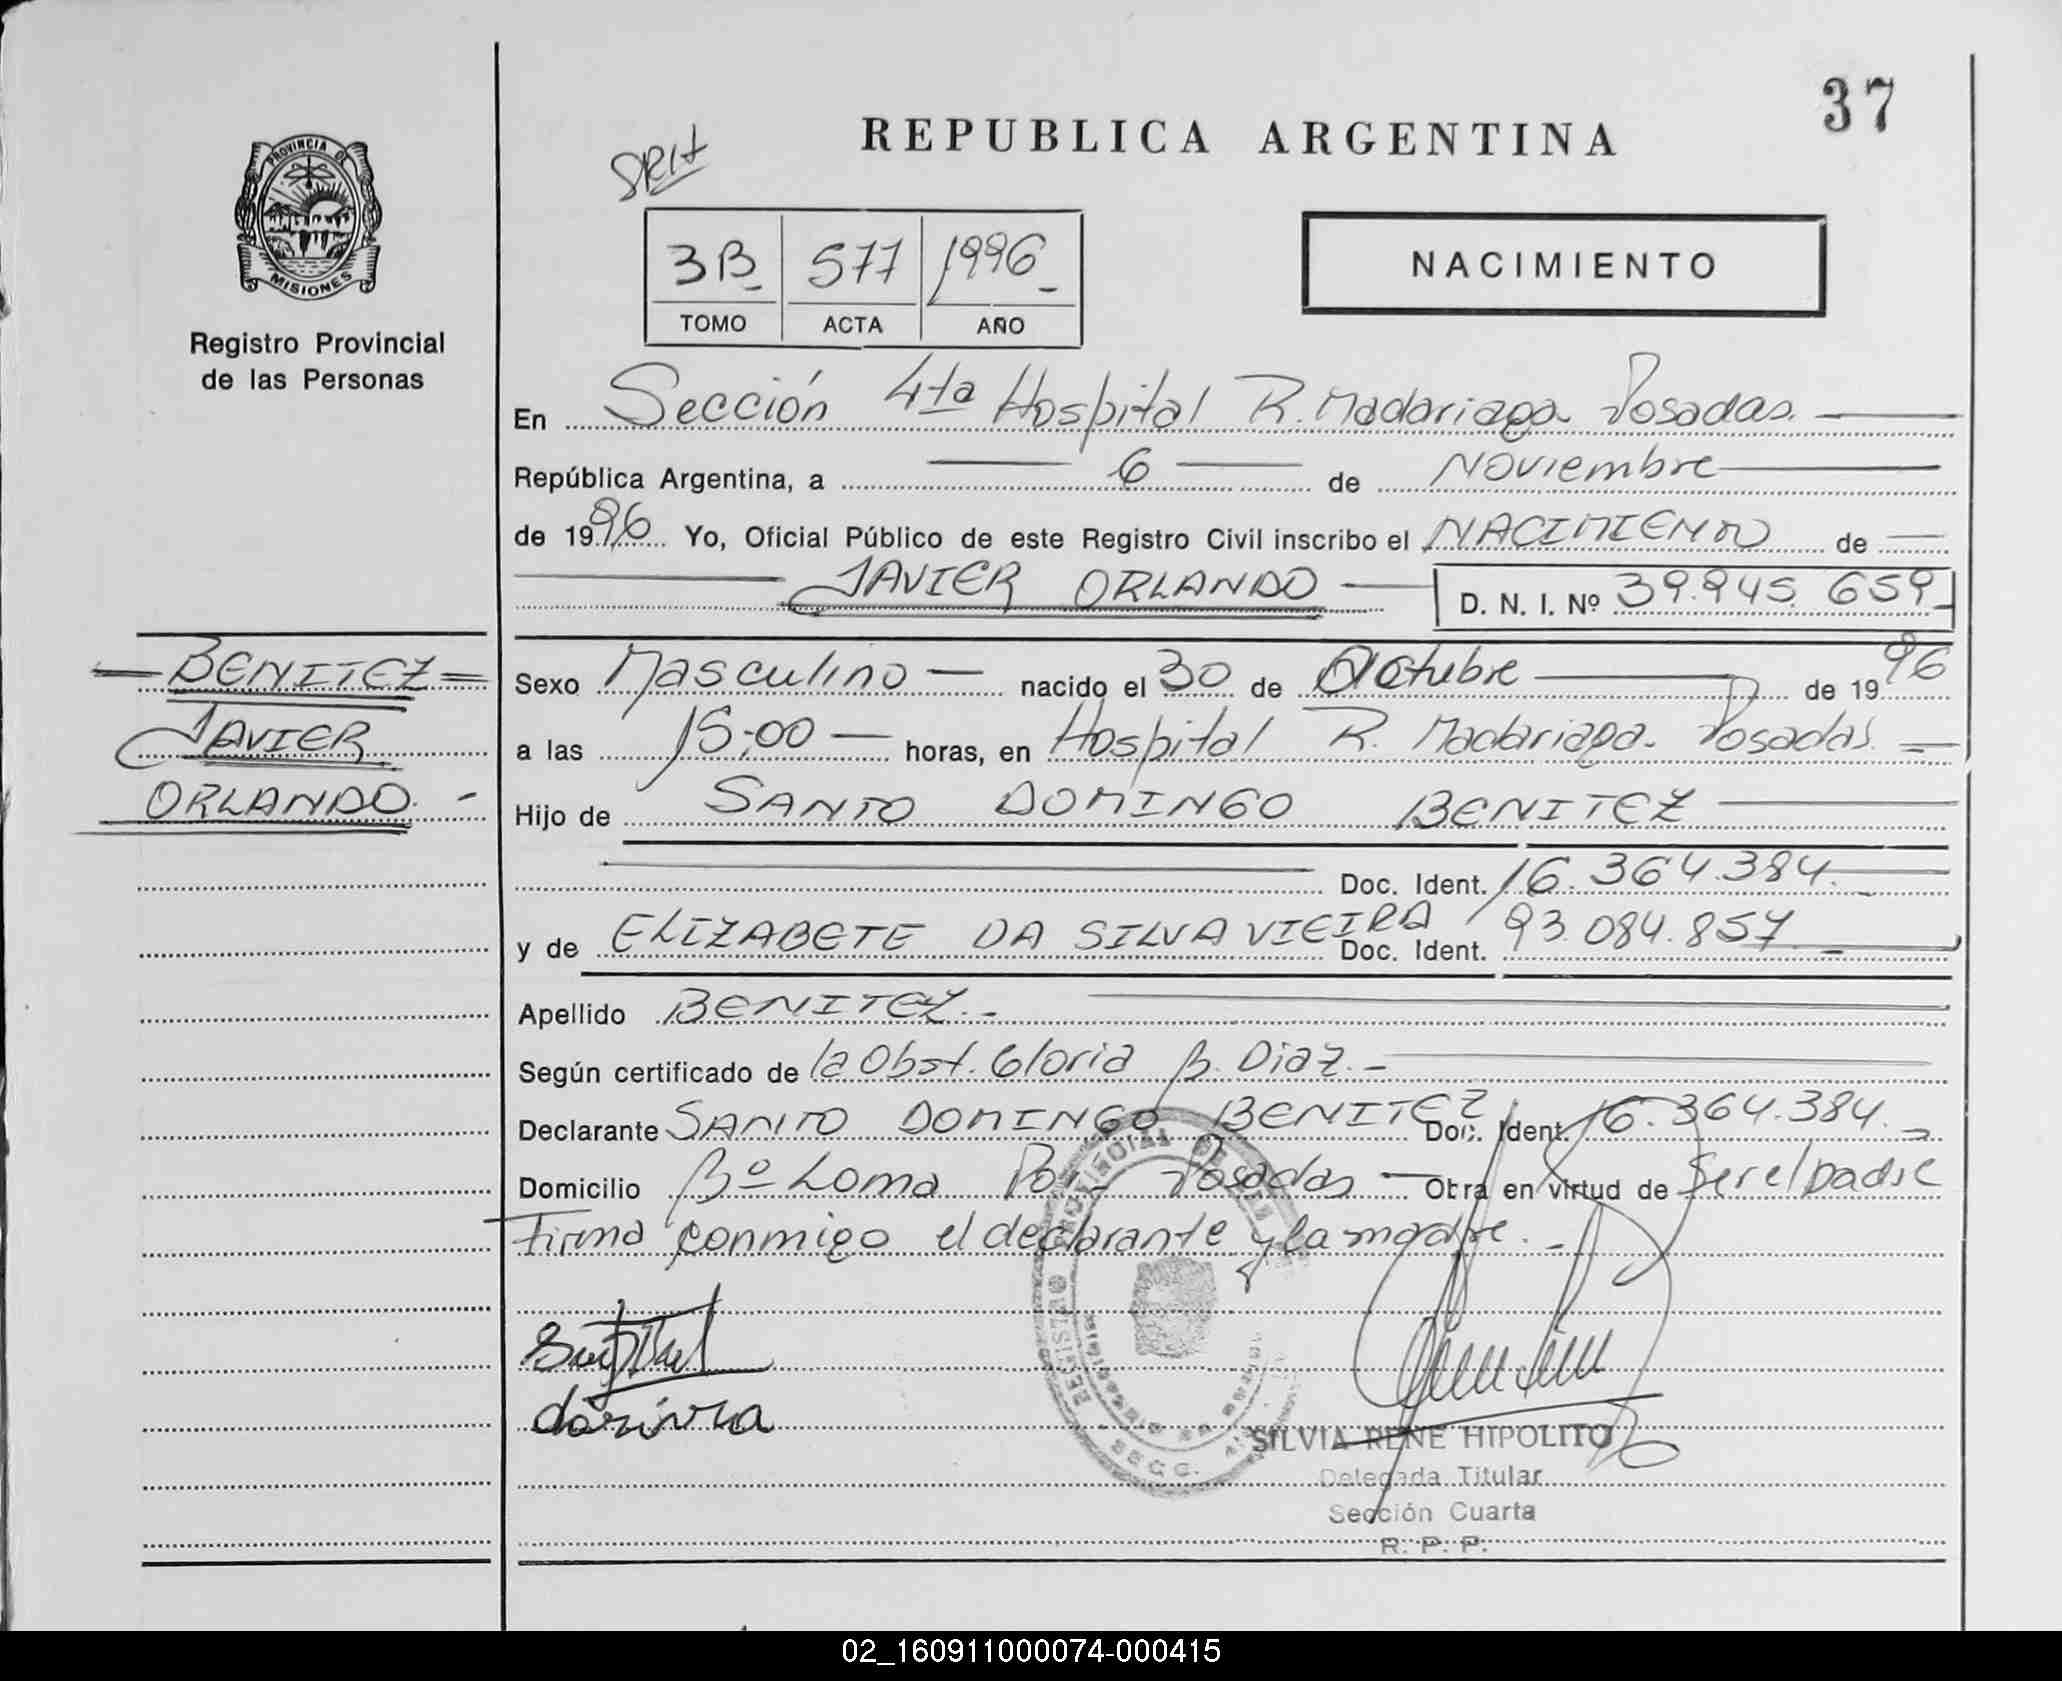 37
REPUBLICA ARGENTINA
PROVINCIA DE
MISIONES
Registro Provincial
de las Personas
3B 577 1996
TOMO ACTA AÑO
NACIMIENTO
En Sección 4ta Hospital R. Madariaga Posadas.
República Argentina, a 6 de Noviembre
de 1996 Yo, Oficial Público de este Registro Civil inscribo el NACIMIENTO de
JAVIER ORLANDO D. N. I. Nº 39.945.659
BENITEZ
JAVIER
ORLANDO.
Sexo Masculino nacido el 30 de Octubre de 1996
a las 15:00 horas, en Hospital R. Madariaga. Posadas.
Hijo de SANTO DOMINGO BENITEZ
Doc. Ident. 16.364.384.
y de ELIZABETE DA SILVA VIEIRA Doc. Ident. 93.084.857
Apellido BENITEZ.
Según certificado de la Obst. Gloria B. Diaz.
Declarante SANTO DOMINGO BENITEZ Doc. Ident. 16.364.384.
Domicilio Bº Loma Poi Posadas Obra en virtud de Ser el Padre
Firma conmigo el declarante y la madre.
REGISTRO PROVINCIAL DE LAS
SECC.
SILVIA RENE HIPOLITO
Delegada Titular
Sección Cuarta
R. P. P.
02_160911000074-000415